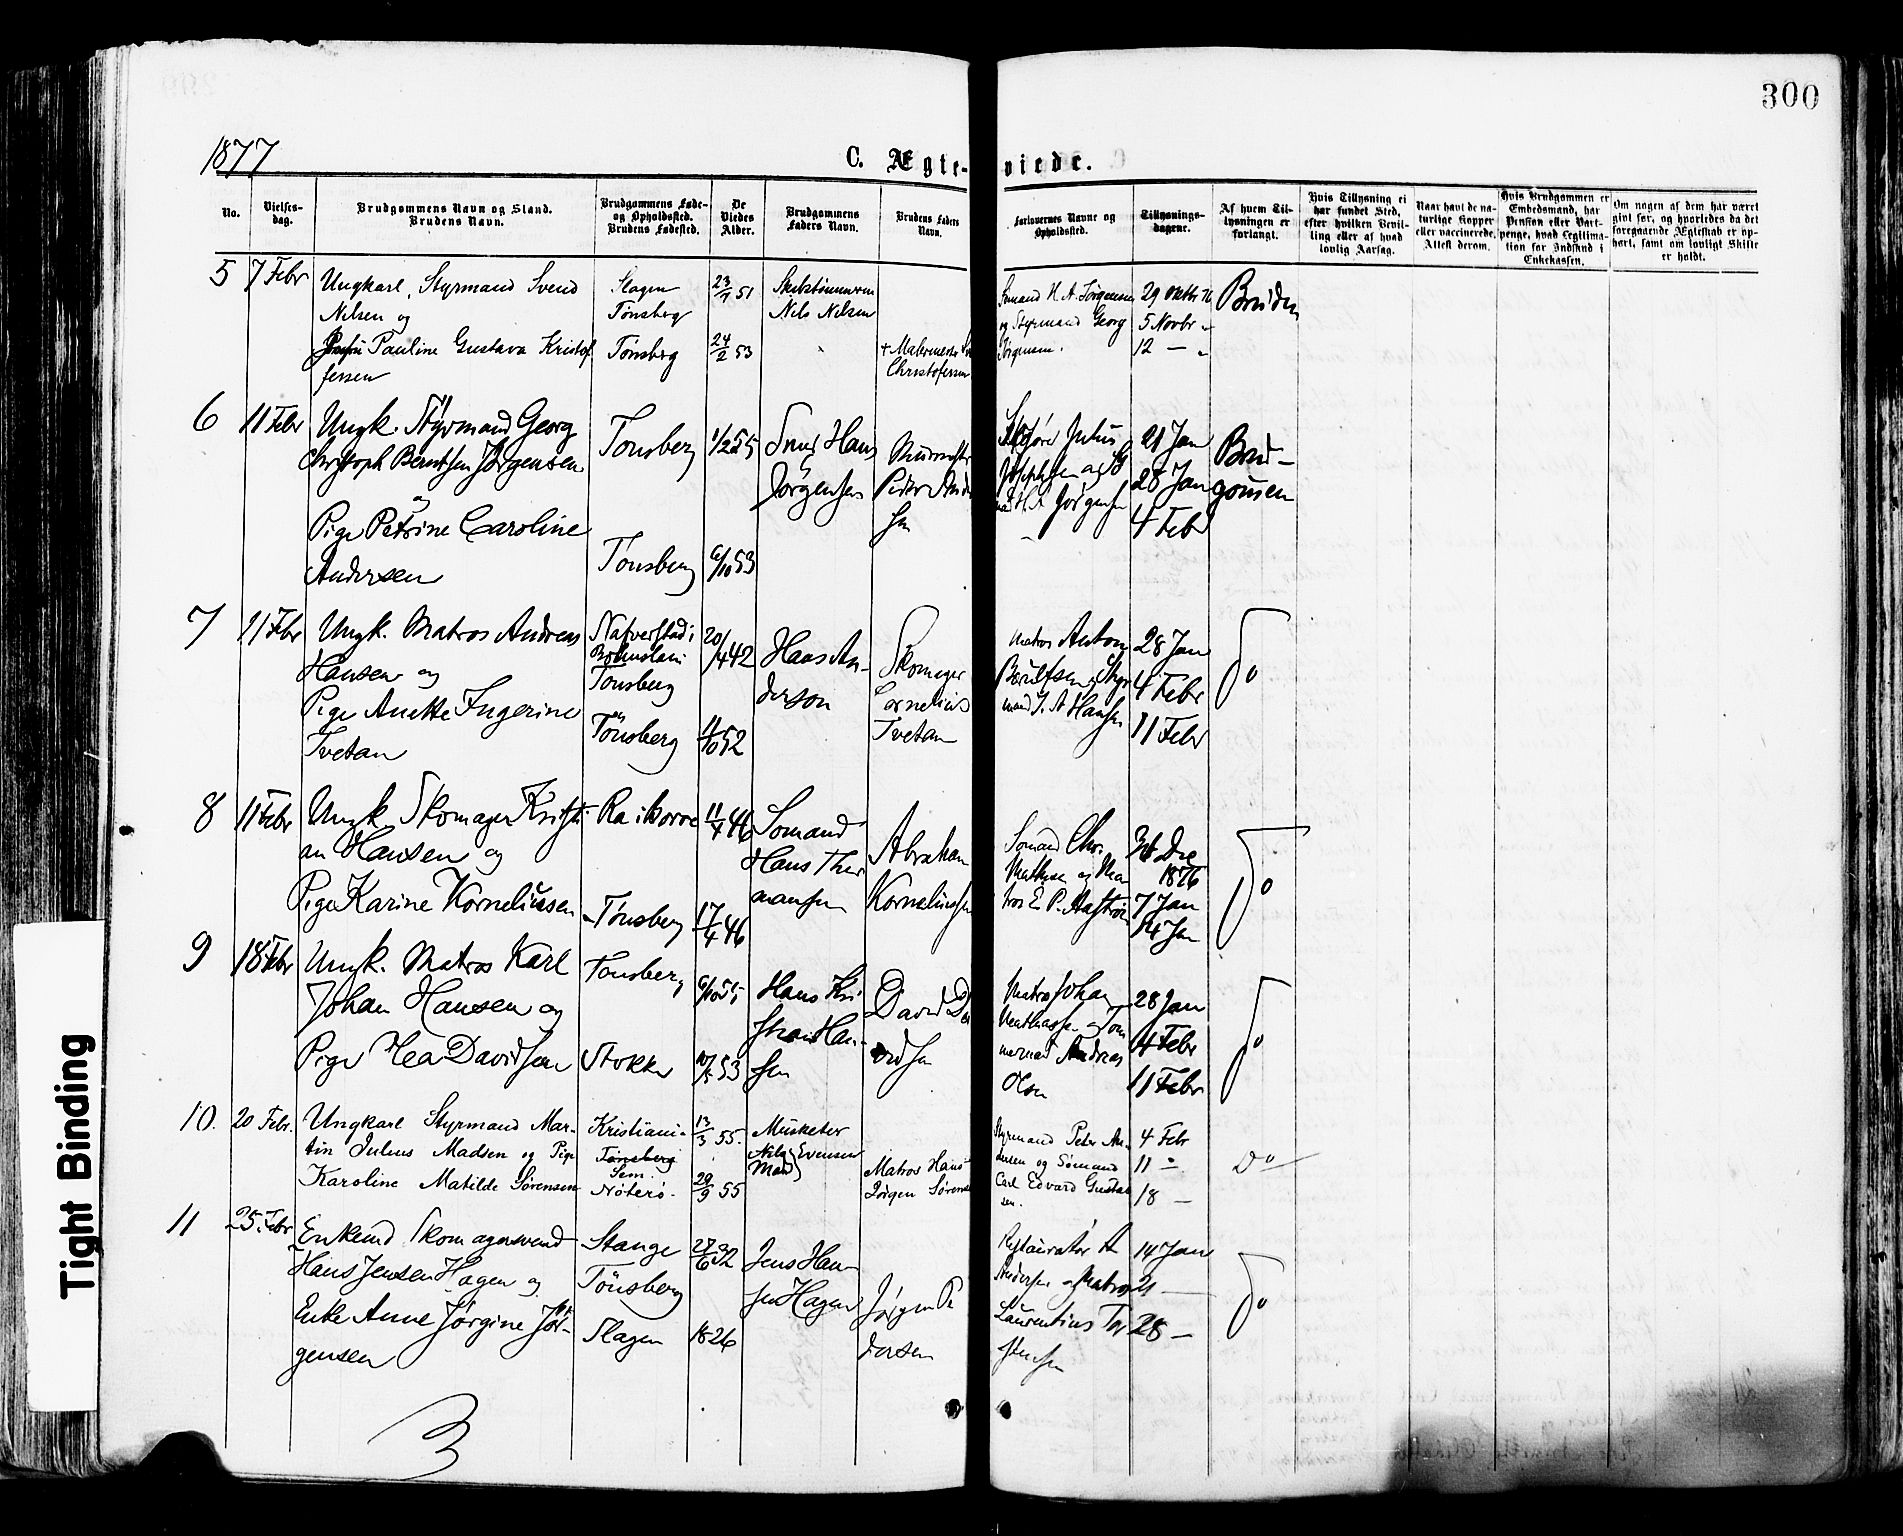 300
1877
C. Ægte-viede.
No.
Vielses-dag.
Brudgommens Navn og Stand.
Brudens Navn.
Brudgommens Føde-
og Opholdsted.
Brudens Fødested.
De
Viedes
Alder.
Brudgommens
Faders Navn.
Brudens Faders
Navn.
Forlovernes Navne og
Opholdsted.
Tillysnings-
dagene.
Af hvem Til-
lysningen er
forlangt.
Hvis Tillysning ei
har fundet Sted,
efter hvilken Bevil-
ling eller af hvad
lovlig Aarsag.
Naar havt de na-
turlige Kopper
eller vaccinerede.
Attest derom.
Hvis Brudgommen er
Embedsmand, har
Pension eller Vart-
penge, hvad Legitima-
tion for Indskud i
Enkekassen.
Om nogen af dem har været
gift før, og hvorledes da det
foregaaende Ægteskab er op-
hørt, samt om lovligt Skifte
er holdt.
5 7 Febr Ungkarl, Styrmand Svend Slagen 23/7 51 29 Oktbr 76 Bruden
Nilsen og Tønsberg Nils Nilsen og Styrmand Georg 5 Novbr
Pauline Gustava Kristof Tønsberg 24/2 53 Jørgensen. 12 —
fersen Christofersen
6 11 Febr Ungk. Styrmand Georg Tønsberg 1/2 55 Hans 21 Jan Brud-
Christoph Berntsen Jørgensen Jørgensen 28 Jan gommen
og 4 Febr
Pige Petrine Caroline
Andersen Tønsberg 6/10 53
7 11 Febr Ungk. Matros Andreas 20/4 42 Hans An- Skomager Matros Anton 28 Jan Do
Hansen og Tønsberg derson Cornelius 4 Febr
Pige Anette Ingerine Hansen 11 Febr
Tvetan Tønsberg 11/10 52 Tvetan
8 11 Febr Ungk Skomager Kristi- Ra i Borre 11/4 46 Sømand Abraham Sømand Chr. Dec Do
an Hansen og Hans Kornelius 1876
Pige Karine Korneliusen Tønsberg 17/4 46 7 Jan
14 Jan
9 18 Febr Ungk. Matros Karl Tønsberg Hans Kri David Da Matros Johan 28 Jan Do
Johan Hansen og stian Han- vidsen 4 Febr
Pige Hea Davidsen Stokke 53 sen Andreas 11 Febr
Olsen
10. 20 Febr. Ungkarl Styrmand Mar- Kristiania 13/3 55. Musketer Styrmand Peter An- 4 Febr
tin Julius Madsen og Pige Tønsberg Nils Evensen Matros Hans dersen og Sømand 11 — Do
Karoline Matilde Sørensen Sem. Nøterø. 29/9 55 Jørgen Sørensen Carl Edvard Gustav 18 —
sen.
11 25. Febr Enkemd Skomagersvend Stange 27/6 32 Jens Han Restauratør A 14 Jan Do
Hans Jensen Hagen og Tønsberg sen Hagen Jørgen Pe Andersen og Matros 21 —
Enke Anne Jørgine Jør- Slagen 1826 dersen Laurentius Tor 28 —
gensen stensen
Tight Binding